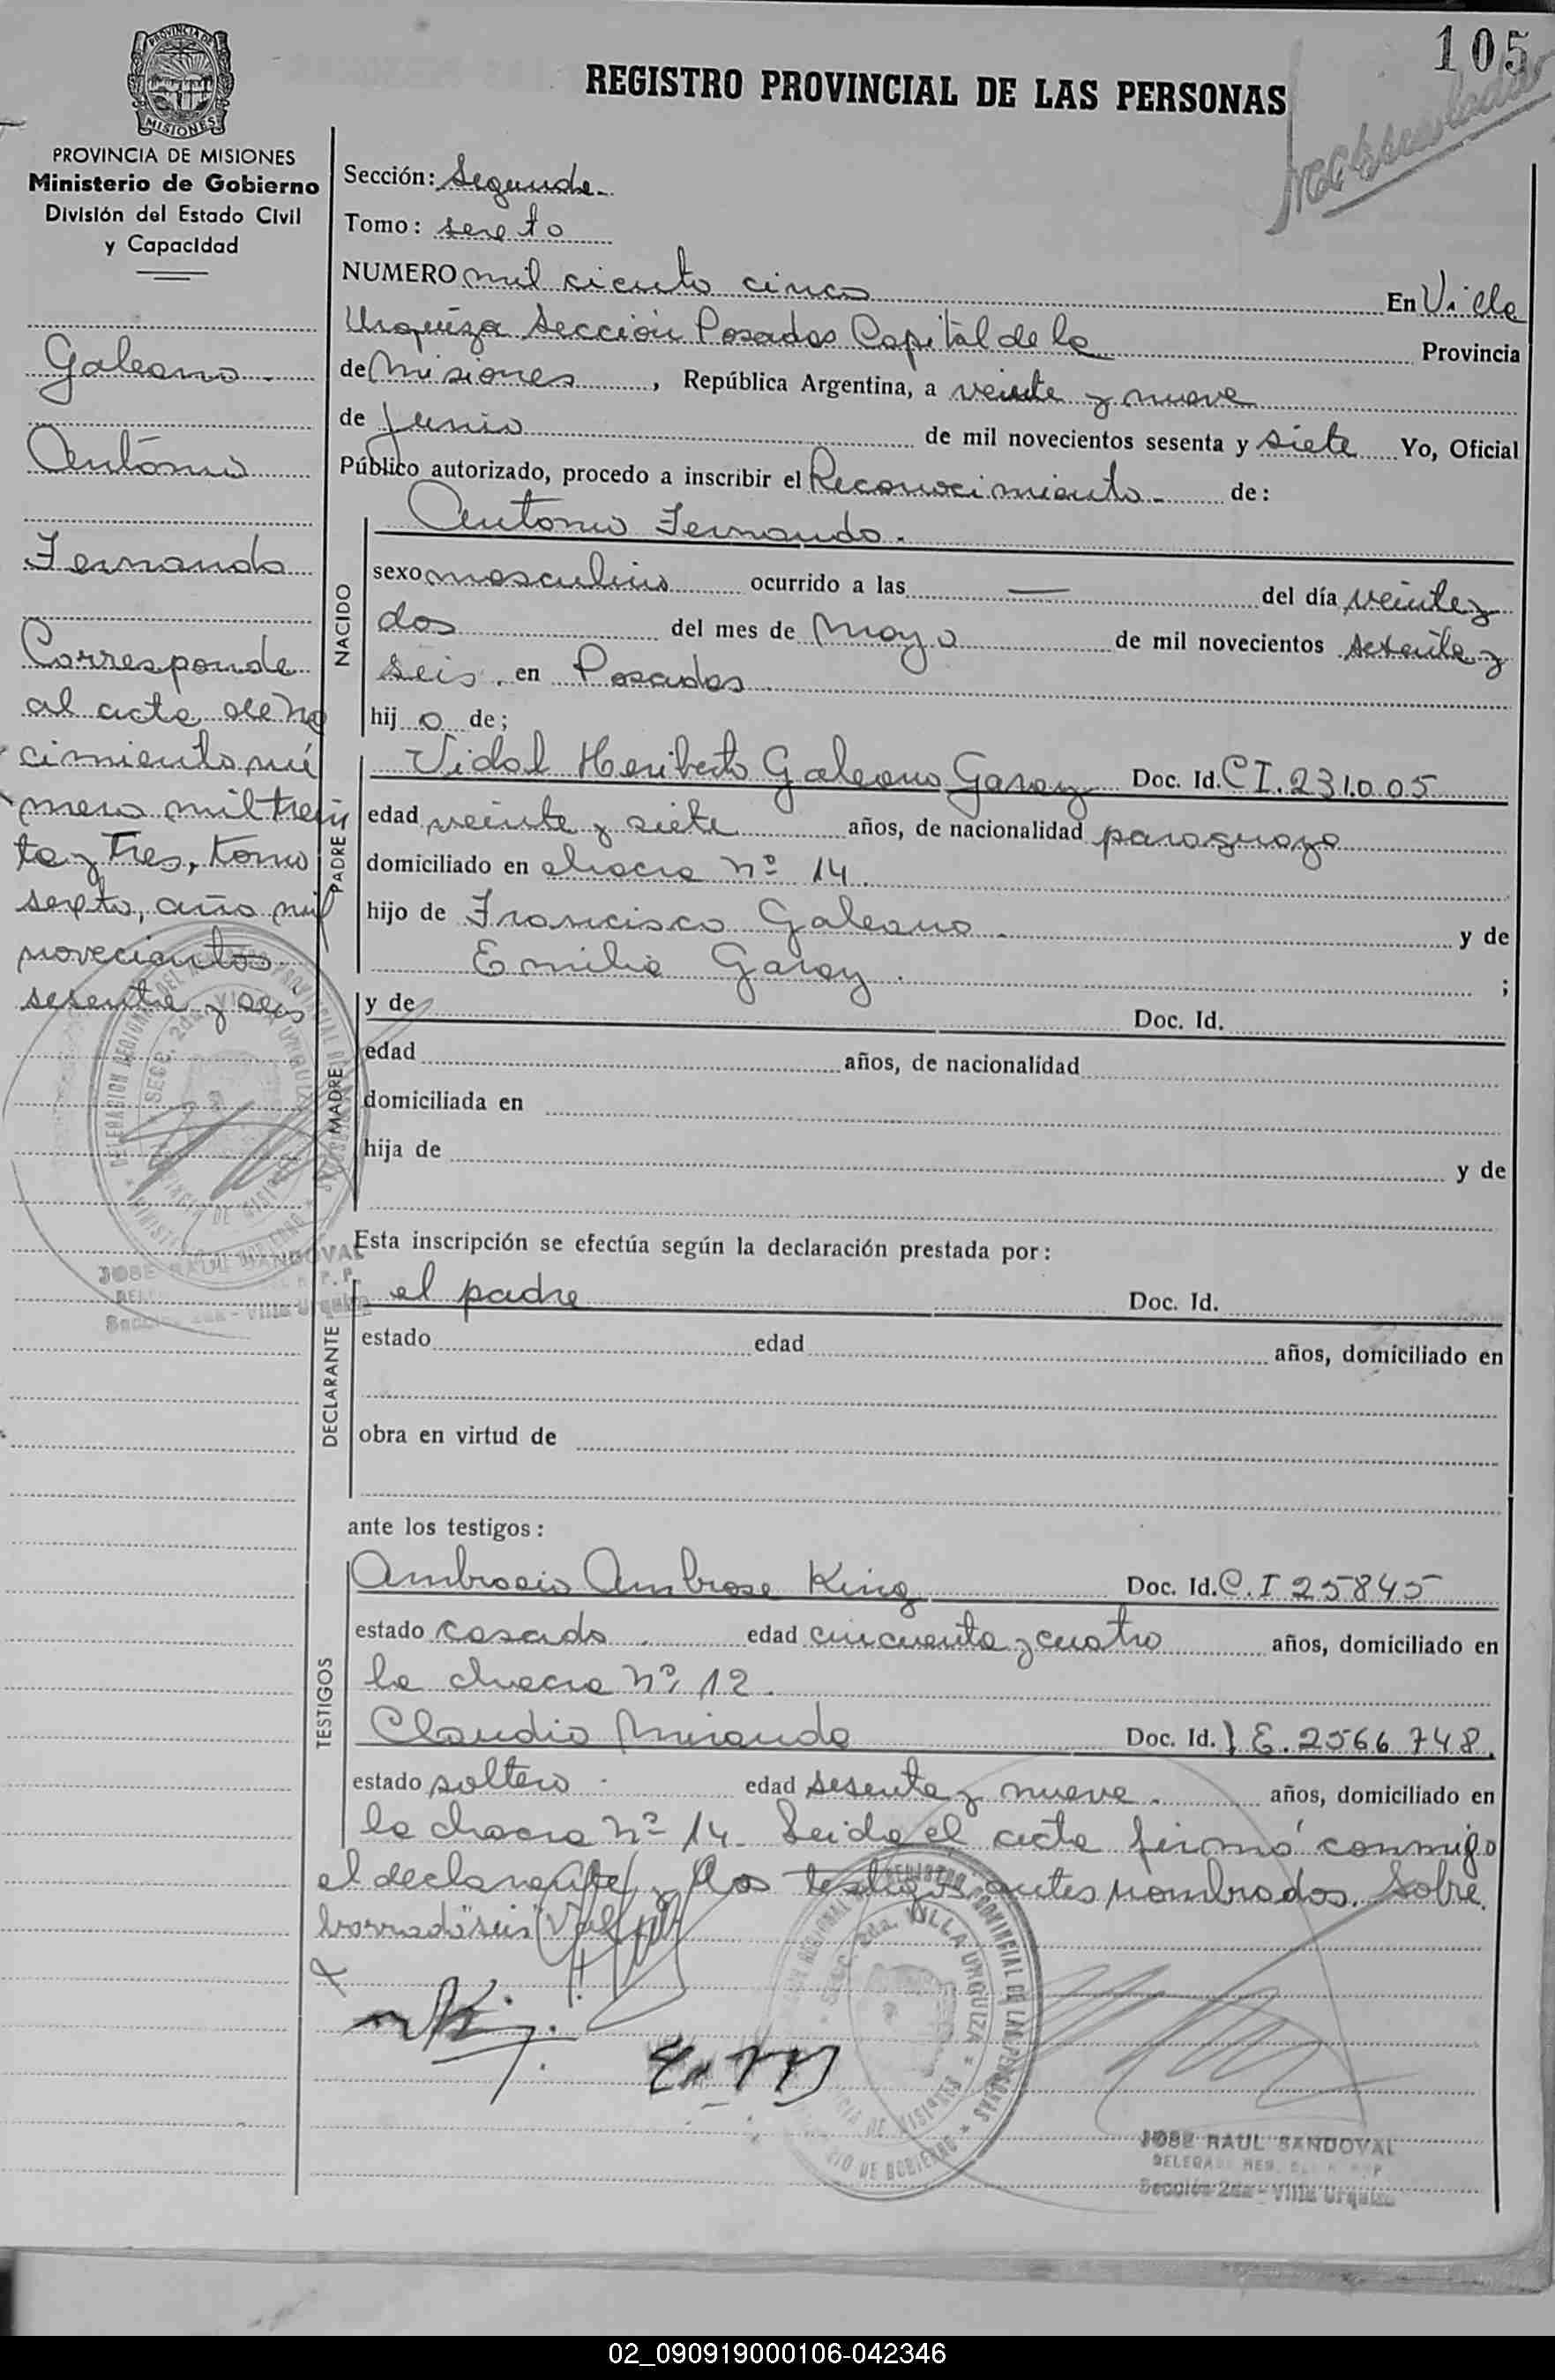 105
REGISTRO PROVINCIAL DE LAS PERSONAS
MISIONES
PROVINCIA DE MISIONES
Ministerio de Gobierno
División del Estado Civil
y Capacidad
Galeano
Antonio
Fernando
Corresponde
al acta de na
cimiento nú
mero mil trein
ta y tres, tomo
sexto, año mil
novecientos
sesenta y seis
Sección: Segunda
Tomo: sexto
NUMERO mil ciento cinco En Villa
Urquiza Sección Posadas Capital de la Provincia
de Misiones, República Argentina, a veinte y nueve
de Junio de mil novecientos sesenta y siete Yo, Oficial
Público autorizado, procedo a inscribir el Reconocimiento de:
NACIDO
Antonio Fernando.
sexo masculino ocurrido a las — del día veinte y
dos del mes de Mayo de mil novecientos setenta y
seis. en Posadas
hij o de;
PADRE
Vidal Heriberto Galeano Garay Doc. Id. CI. 231.005
edad veinte y siete años, de nacionalidad paraguaya
domiciliado en chacra nº 14.
hijo de Francisco Galeano y de
Emilia Garay. ;
MADRE
y de Doc. Id.
edad años, de nacionalidad
domiciliada en
hija de y de
Esta inscripción se efectúa según la declaración prestada por:
DECLARANTE
el padre Doc. Id.
estado edad años, domiciliado en
obra en virtud de
ante los testigos:
TESTIGOS
Ambrosio Ambrose King Doc. Id. C. I 25845
estado casado. edad cincuenta y cuatro años, domiciliado en
la chacra nº 12.
Claudio Miranda Doc. Id. E. 2566748.
estado soltero. edad sesenta y nueve. años, domiciliado en
la chacra nº 14. Leida el acta firmó conmigo
el declarante y los testigos antes nombrados. Sobre
borrado "seis" Vale
JOSE RAUL SANDOVAL
Sección 2da - Villa Urquiza
JOSE RAUL SANDOVAL
Sección 2da - Villa Urquiza
02_090919000106-042346